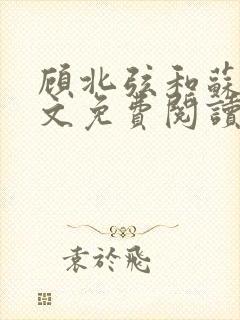 顾北弦和蘇
文免費閱讀
袁於飛